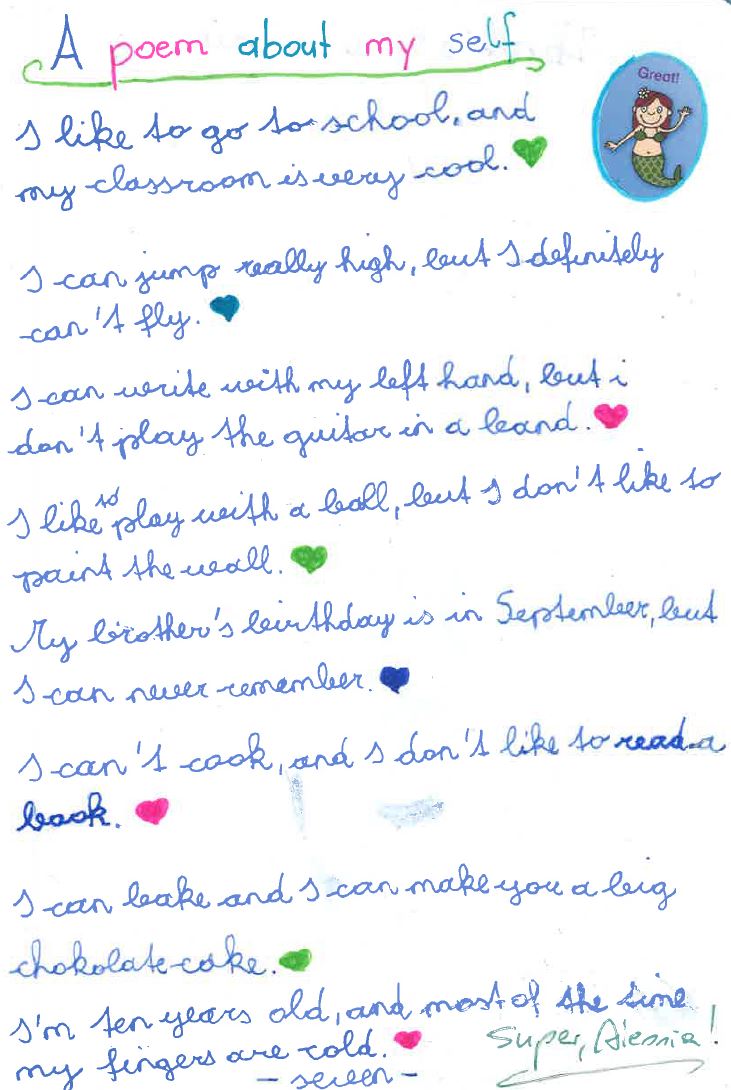 A poem about my self
Great!
I like to go to school, and
my classroom is very cool.
I can jump really high, but I definitely
can't fly.
I can write with my left hand, but i
don't play the guitar in a band.
I like to play with a ball, but I don't like to
paint the wall.
My brother's birthday is in September, but
I can never remember.
I can't cook, and I don't like to read a
book.
I can bake and I can make you a big
chokolate cake.
I'm ten years old, and most of the time
my fingers are cold.
Super, Alessia!